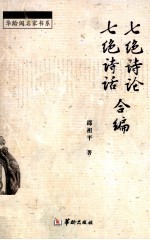 华龄阅名家书系
七绝诗论
七绝诗话
合编
邵祖平 著
华龄出版社